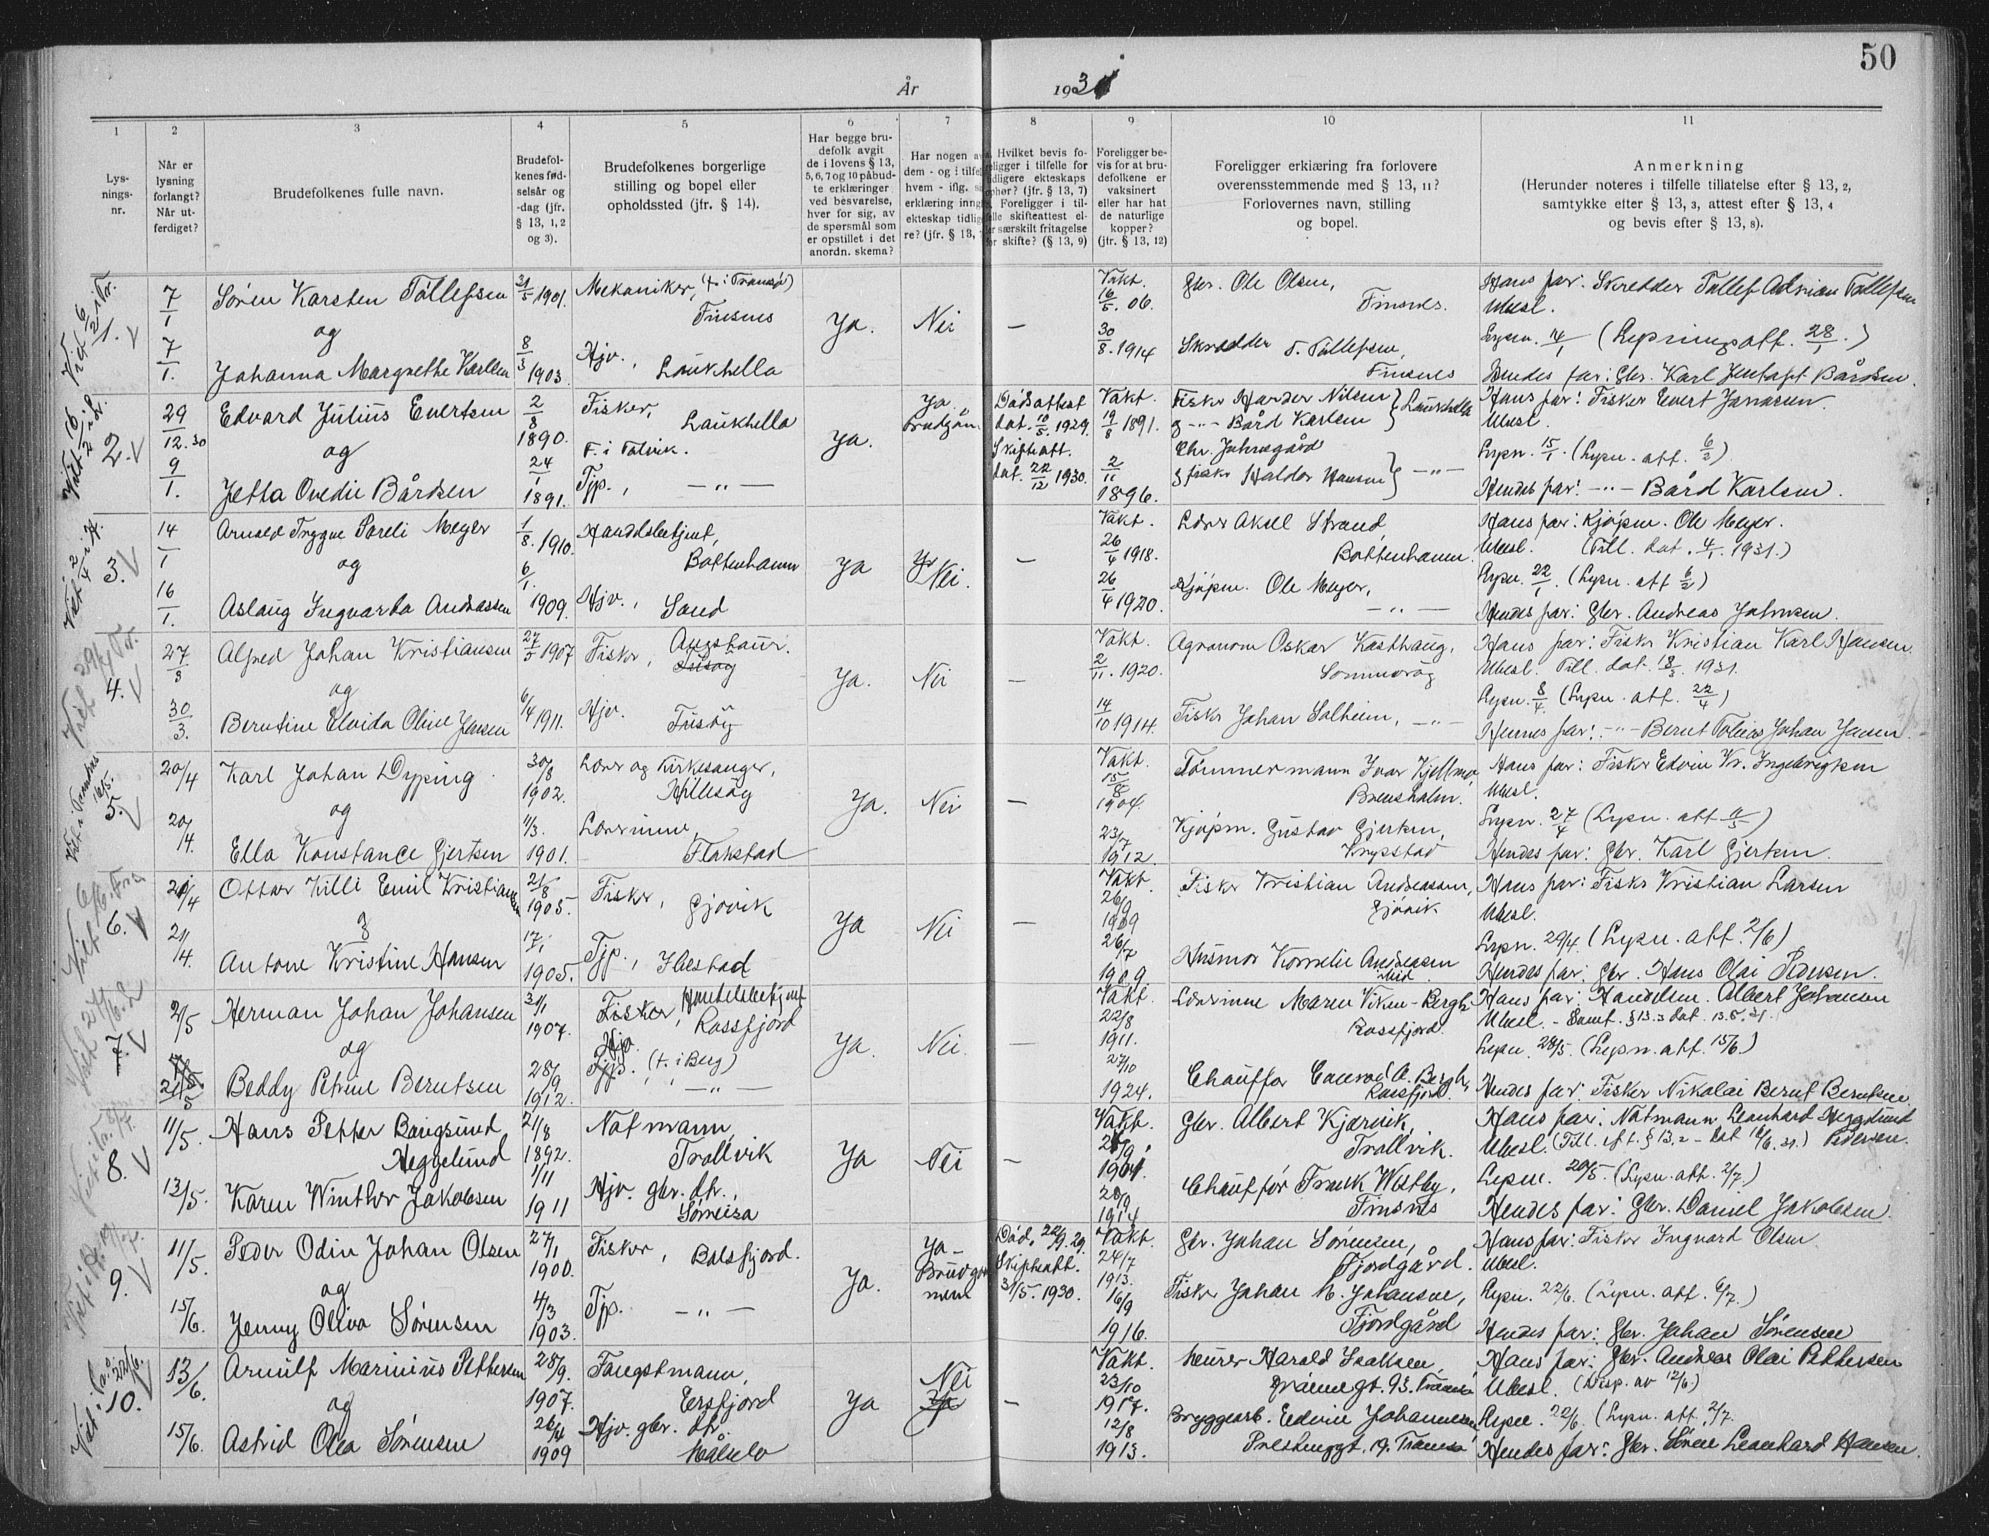 50
År 1931
1 2 3 4 5 6 7 8 9 10 11
Lys-
nings-
nr.
Når er
lysning
forlangt?
Når ut-
ferdiget?
Brudefolkenes fulle navn.
Brudefol-
kenes fød-
selsår og
-dag (jfr.
§ 13, 1, 2
og 3).
Brudefolkenes borgerlige
stilling og bopel eller
opholdssted (jfr. § 14).
Har begge bru-
defolk avgit
de i lovens § 13,
5, 6, 7 og 10 påbud-
te erklæringer
ved besvarelse,
hver for sig, av
de spørsmål som
er opstillet i det
anordn. skema?
Har nogen av
dem - og i tilfelle
hvem - iflg.
erklæring inngått
ekteskap tidlige-
re? (jfr. § 13,
Hvilket bevis fo-
religger i tilfelle for
tidligere ekteskaps
ophør? (jfr. § 13, 7)
Foreligger i til-
felle skifteattest el-
ler særskilt fritagelse
for skifte? (§ 13, 9)
Foreligger be-
vis for at bru-
defolkene er
vaksinert
eller har hat
de naturlige
kopper?
(jfr. § 13, 12)
Foreligger erklæring fra forlovere
overensstemmende med § 13, 11?
Forlovernes navn, stilling
og bopel.
Anmerkning
(Herunder noteres i tilfelle tillatelse efter § 13, 2,
samtykke efter § 13, 3, attest efter § 13, 4
og bevis efter § 13, 8).
1. 7/1 Søren Karsten Tøllefsen 31/5 1901. Mekaniker, (f. i Tromsø) Vakt. Gbr. Ole Olsen, Hans far: Skredder Tollef Adrian Tollefsen
Finsnes Ja. Nei — 16/5.06. Finsnes. Ubesl.
og 30/8.1914 Skredder T. Tøllefsen, Lysn. 14/1 (Lysningsatt. 28/1.)
7/1. Johanna Margrethe Karlsen 8/3 1903. Hjv., Laukhella Finsnes Hendes far: Gbr. Karl Bårdsen.
2. 29/12.30 Edvard Julius Evertsen 2/8 1890. Fisker, Laukhella Ja. Ja brudgom Dødsattest dat. 10/5.1929. Vakt. 19/8 1891. Fisker Harder Nilsen Laukhella Hans far: Fisker Evert Jensen.
og F. i Talvik. Skifteatt. og -"- Bård Karlsen Ubesl.
dat. 22/12 1930. 2/11 1896. Chr. Johnsgård Lysn. 15/1. (Lysn. att. 6/2)
9/1. Jetta Ovedie Bårdsen 24/1 1891. Tjp., -"- og fisker Haldor Hansen -"- Hendes far: -"- Bård Karlsen.
3. 14/1 Arnold Tryggve Soreli Meyer 1/8.1910. Handelsbetjent, Vakt. Lærer Aksel Strand, Hans far: Kjøpm. Ole Meyer.
og Bottenhamn Ja Nei. — 26/4 1918. Bottenhamn. Ubesl. (Till. dat. 4/1.1931.)
16/1. Aslaug Ingvarda Andreassen 6/1. 1909. Hjv., Sand 26/4 1920. Kjøpm. Ole Meyer, Lysn. 22/1. (Lysn. att 6/2)
-"- Hendes far: Gbr. Andreas Johnsen.
4. 27/3 Alfred Johan Kristiansen 27/5 1907 Fisker, Vakt. Agronom Oskar Kasthaug, Hans far: Fisker Kristian Karl Hansen.
og Ja. Nei — 2/11.1920. Sommervåg Ubesl. Till. dat. 18/3.1931.
Lysn. 8/4. (Lysn. att. 22/4)
30/3. Berntine Elvida Olive Jensen 6/4 1911. Hjv. Husøy 14/10 1914. Fisker Johan Solheim, -"- Hennes far: -"- Bernt Tobias Johan Jensen.
5. 20/4 Karl Johan Dyping. 30/8 1902. Lærer og Kirkesanger, Hillesøy Vakt. 15/8 1904. Tømmermann Ivar Kjellmo, Brensholm. Hans far: Fisker Edvin Kr. Ingebrigtsen
og Ja. Nei — Ubesl.
20/4. Ella Konstance Gjertsen 11/3. 1901. Lærerinne, Flakstad 23/7 1912. Kjøpm. Gustav Gjertsen, Krysstad Lysn. 27/4 (Lysn. att 11/5)
Hendes far: Gbr. Karl Gjertsen.
6. 21/4 Ottar Killi Emil Kristiansen 21/8 1905. Fisker, Gjøvik Vakt. 26/9 1909 Fisker Kristian Andreassen, Gjøvik Hans far: Fisker Kristian Larsen
& Ja Nei — Ubesl.
21/4. Antone Kristine Hansen 17/1 1905. Tjp., Ibestad 26/7 1909. Husmor Kornelie Andreassen sted Lysn. 29/4. (Lysn. att. 2/6)
Hendes far: Gbr. Hans Olai Pedersen.
7. 2/5 Herman Johan Johansen 31/1 1907. Fisker, Handelsbetjent Rossfjord Vakt. 22/8 1911. Lærerinne Maren Viken-Bergh, Rossfjord. Hans far: Handelsm. Albert Johansen
og Hjv. Ja. Nei. Ubesl. - Samt. § 13.3 dat. 13.5.31.
Lysn. 28/5. (Lysn. att. 15/6.)
21/5 Beddy Petrine Berntsen 28/9 1912. Tjp. (f. i Berg) -"- 27/10 1924. Chauffør Conrad A. Bergh, Rossfjord. Hendes far: Fisker Nikolai Bernt Berntsen.
8. 11/5. Hans Petter Bangsund Heggelund 21/8 1892. Notmann, Trollvik Ja Nei — Vakt. 1901. Gbr. Albert Kjærvik, Trollvik. Hans far: Notmann Leonhard Heggelund Pedersen.
Ubesl. (Till. eft. § 13.2 - dat 16/6.31.)
13/5. Karen Winther Jakobsen 1/11 1911 Hjv. gbr. dtr., Sørreisa 20/9 1914 Chauffør Frank Westby, Finsnes Lysn. 20/5. (Lysn. att. 2/7)
Hendes far: Gbr. Daniel Jakobsen.
9. 11/5. Peder Odin Johan Olsen 27/1 1900. Fisker, Balsfjord. Ja - Brudgommen Død, 22/9.29. Vakt. 24/7 1913. Gbr. Johan Sørensen, Fjordgård. Hans far: Fisker Ingvard Olsen
og Ja. Skifteatt. 31/5.1930. Ubesl.
15/6. Jenny Oliva Sørensen 4/3 1903. Tjp. -"- 16/9 1916. Fisker Johan M. Johansen, Fjordgård Lysn. 22/6. (Lysn. att. 6/7.)
Hendes far: Gbr. Johan Sørensen
10. 13/6. Arnulf Marinius Pettersen 28/9. 1907. Fangstmann, Ersfjord Nei Vakt. 23/10 1917. Murer Harald Isaksen, Grønnegt. 93. Tromsø Hans far: Gbr. Andreas Olai Pettersen
og Ja — Ubesl. (Disp. av 12/6)
15/6. Astrid Olea Sørensen 26/4 1909 Hjv. gbr. dtr. Målselv 12/8 1913. Bryggearb. Edvin Johannessen Prestenggt. 19. Tromsø Lysn. 22/6. (Lysn. att. 2/7.
Hendes far: Gbr. Søren Leonhard Hansen.